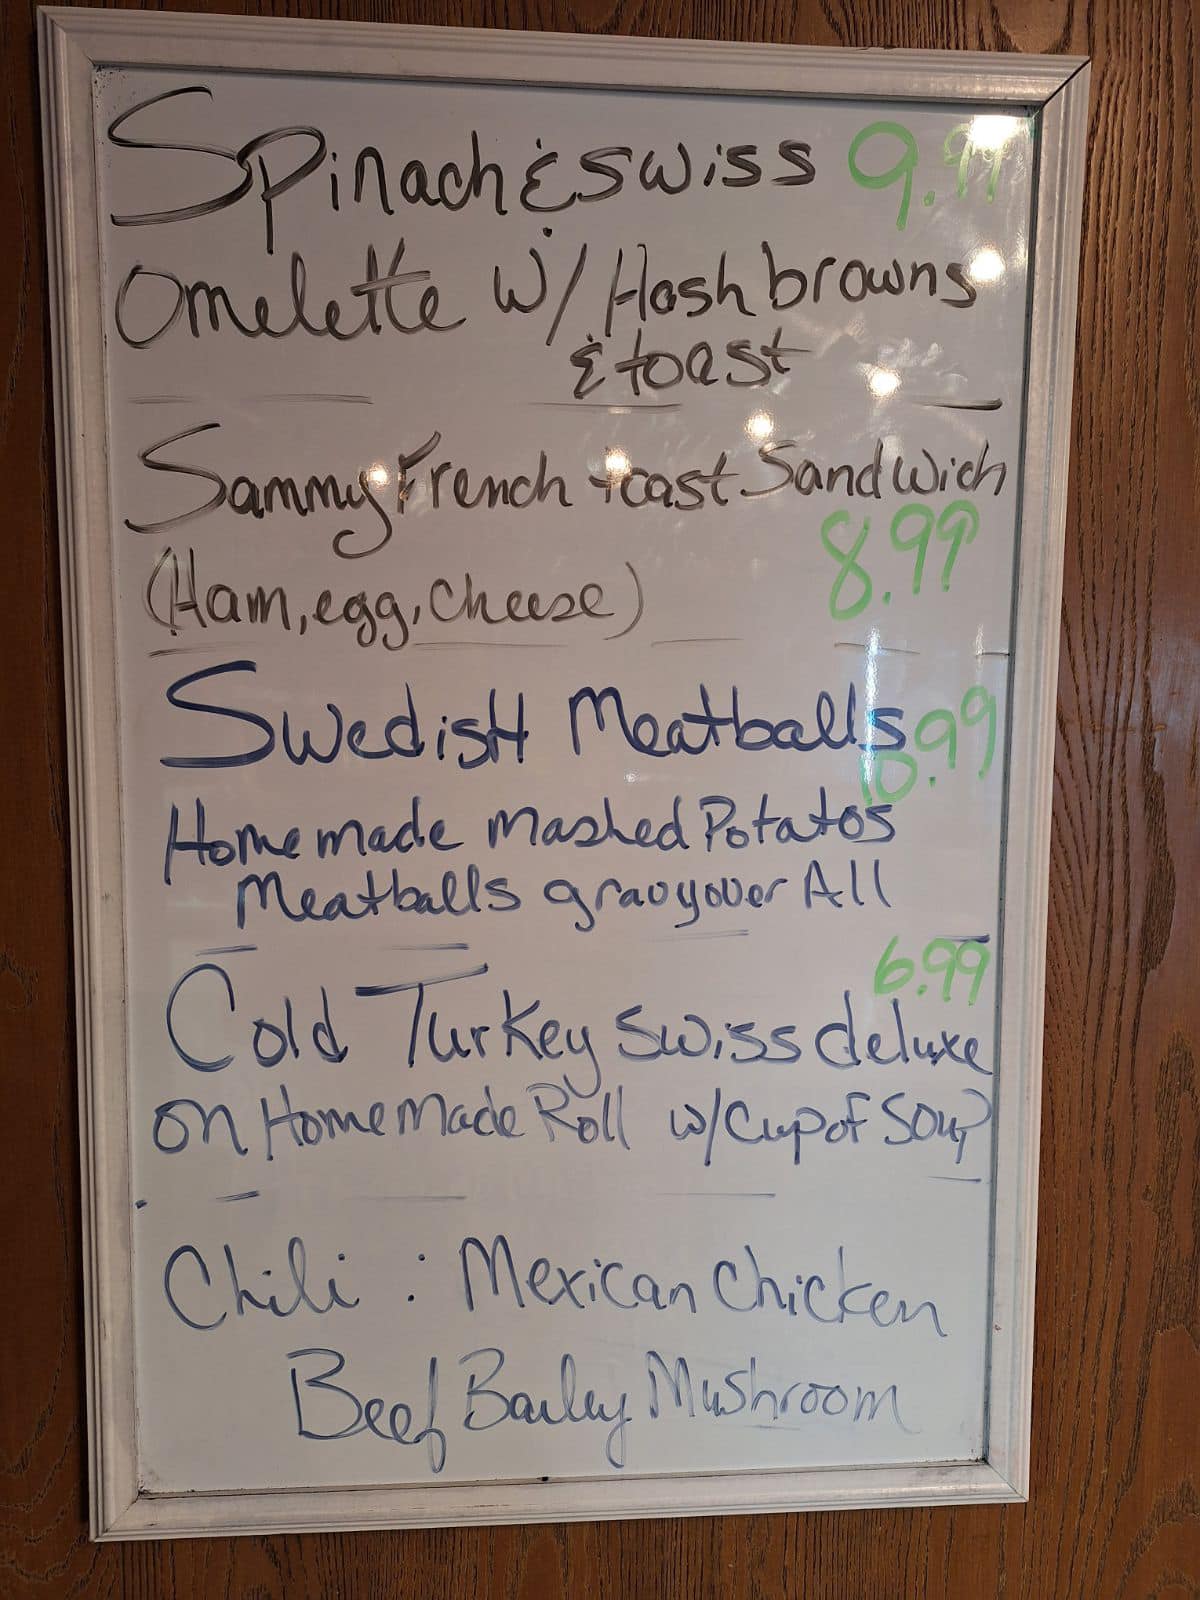 Spinach & swiss 9.99
Omelette w/ Hashbrowns
& toast
Sammy French toast Sandwich
8.99
(Ham, egg, cheese)
Swedish Meatballs
10.99
Homemade mashed Potatos
Meatballs gravy over All
6.99
Cold Turkey Swiss deluxe
on HomeMade Roll w/ Cup of Soup
Chili : Mexican Chicken
Beef Barley Mushroom